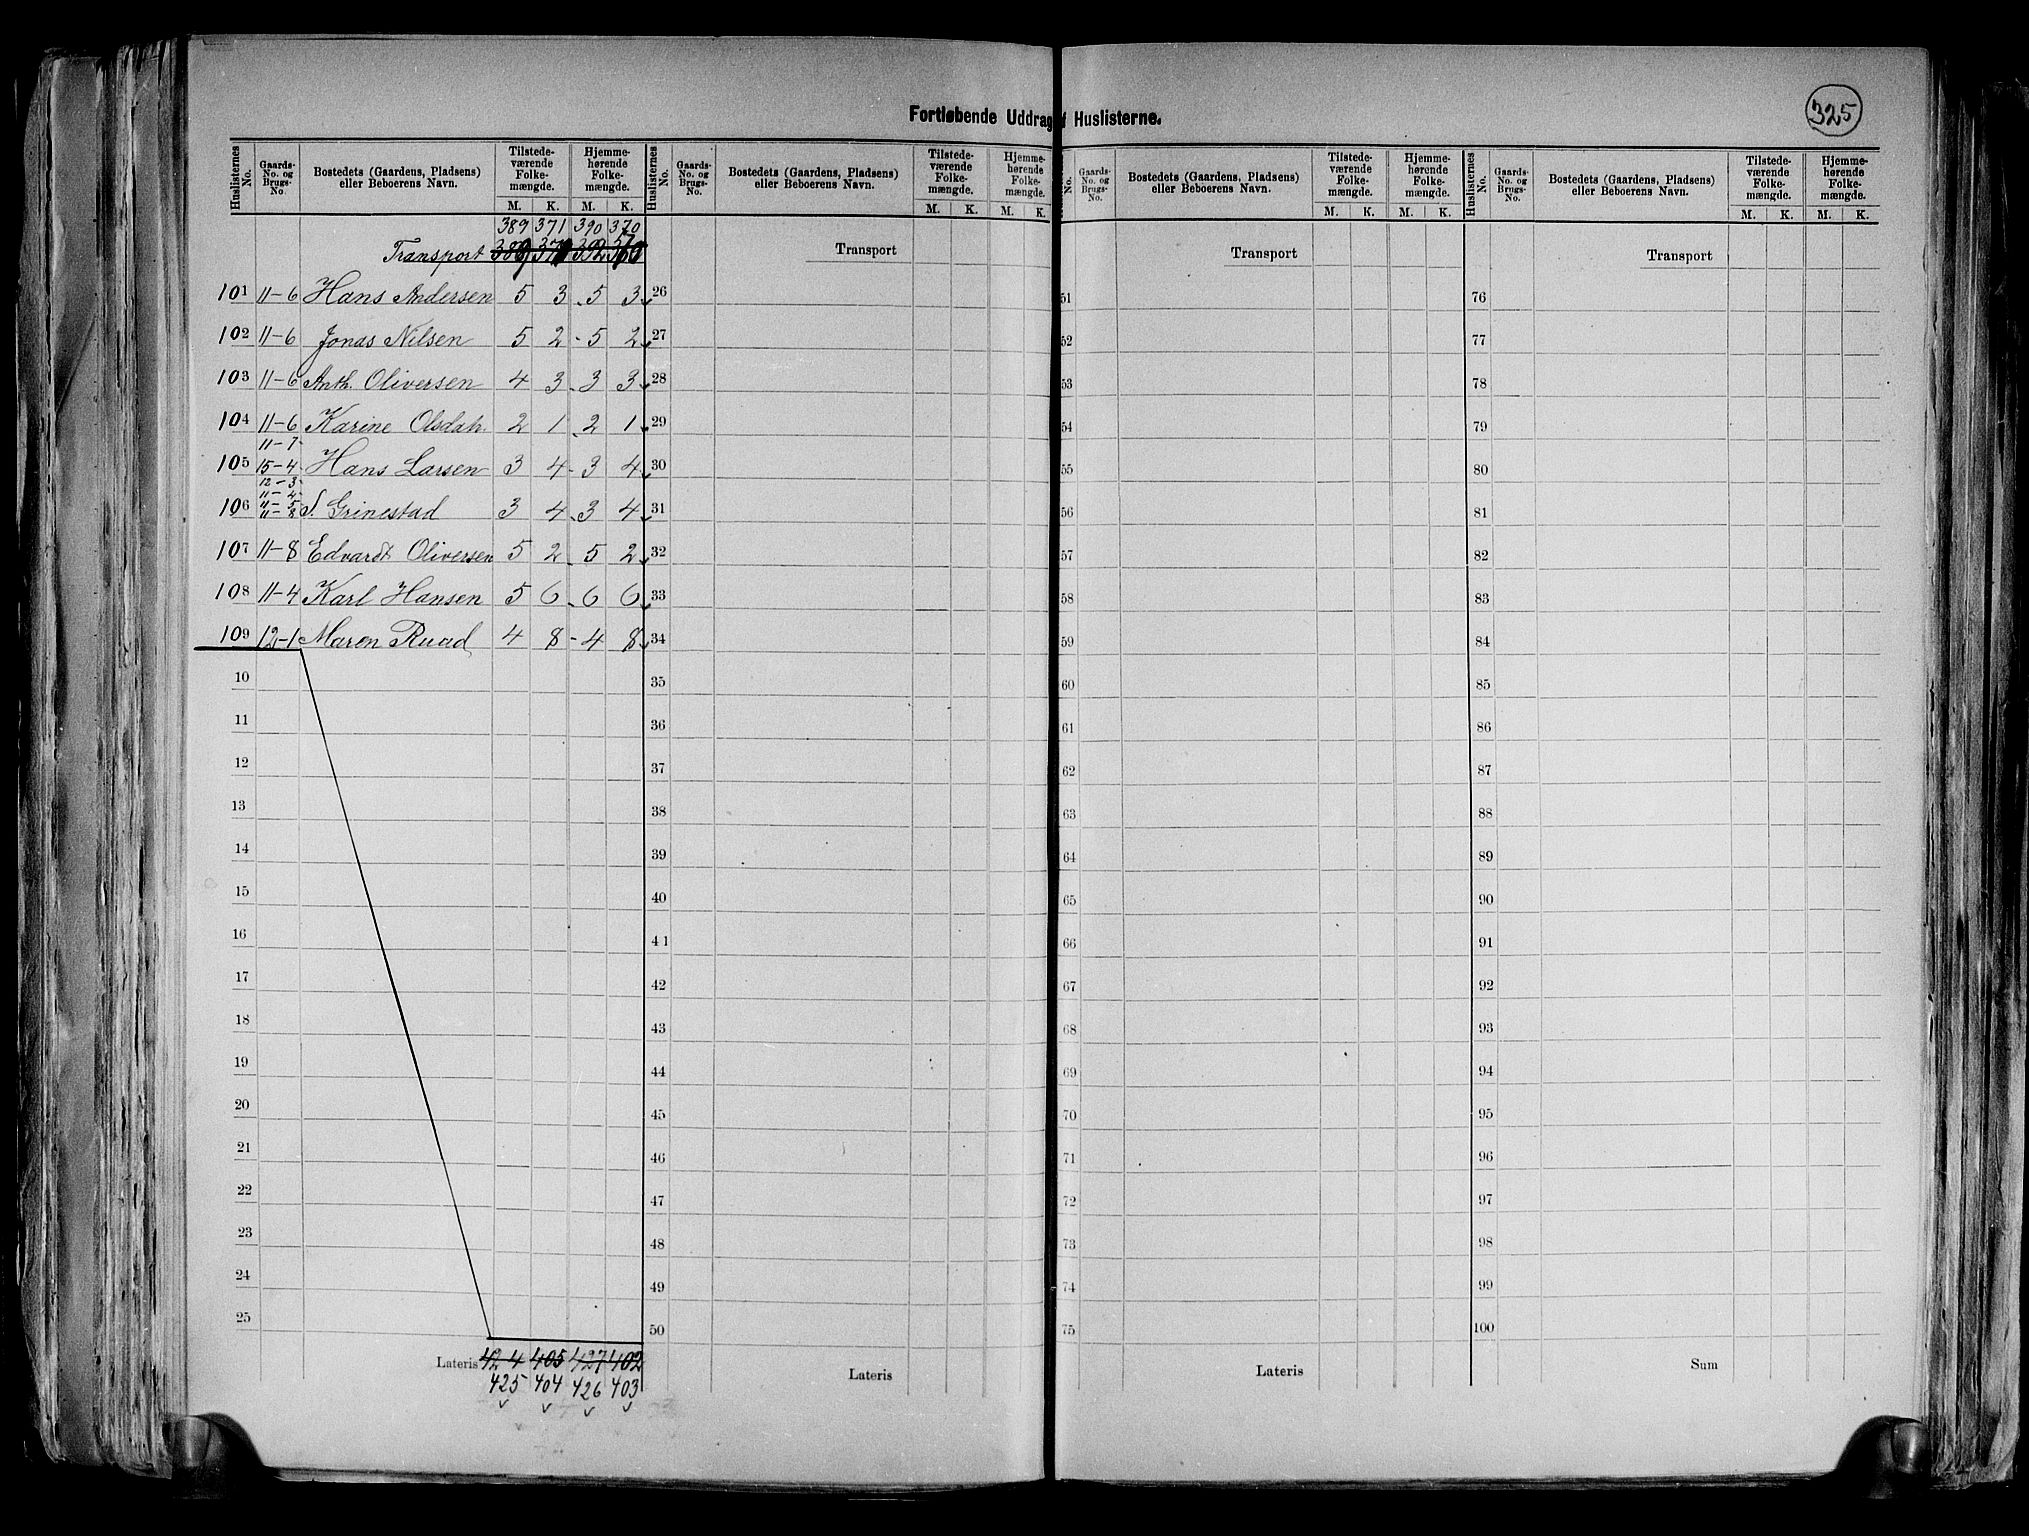 325
Fortløbende Uddrag f Huslisterne.
Huslisternes No. Gaards-No. og Brugs-No. Bostedets (Gaardens, Pladsens) eller Beboerens Navn. Tilstede-værende Folke-mængde. Hjemme-hørende Folke-mængde. Huslisternes No. Gaards-No. og Brugs-No. Bostedets (Gaardens, Pladsens) eller Beboerens Navn. Tilstede-værende Folke-mængde. Hjemme-hørende Folke-mængde. No. Gaards-No. og Brugs-No. Bostedets (Gaardens, Pladsens) eller Beboerens Navn. Tilstede-værende Folke-mængde. Hjemme-hørende Folke-mængde. Huslisternes No. Gaards-No. og Brugs-No. Bostedets (Gaardens, Pladsens) eller Beboerens Navn. Tilstede-værende Folke-mængde. Hjemme-hørende Folke-mængde.
M. K. M. K. M. K. M. K. M. K. M. K. M. K. M. K.
389 371 390 370
Transport Transport Transport Transport
101 11-6 Hans Andersen 5 3 - 5 3 26 51 76
102 11-6 Jonas Nilsen 5 2 - 5 2 27 52 77
103 11-6 Anth. Oliversen 4 3 - 3 3 28 53 78
104 11-6 Karine Olsdat. 2 1 - 2 1 29 54 79
11-7
105 15-4 Hans Larsen 3 4 - 3 4 30 55 80
12-3
11-4
11-5
106 11-8 S. Grinestad 3 4 - 3 4 31 56 81
107 11-8 Edvardt Oliversen 5 2 - 5 2 32 57 82
108 11-4 Karl Hansen 5 6 - 6 6 33 58 83
109 12-1 Maren Ruud 4 8 - 4 8 34 59 84
10 35 60 85
11 36 61 86
12 37 62 87
13 38 63 88
14 39 64 89
15 40 65 90
16 41 66 91
17 42 67 92
18 43 68 93
19 44 69 94
20 45 70 95
21 46 71 96
22 47 72 97
23 48 73 98
24 49 74 99
25 50 75 100
Lateris 424 405 427 402 Lateris Lateris Sum
425 404 426 403